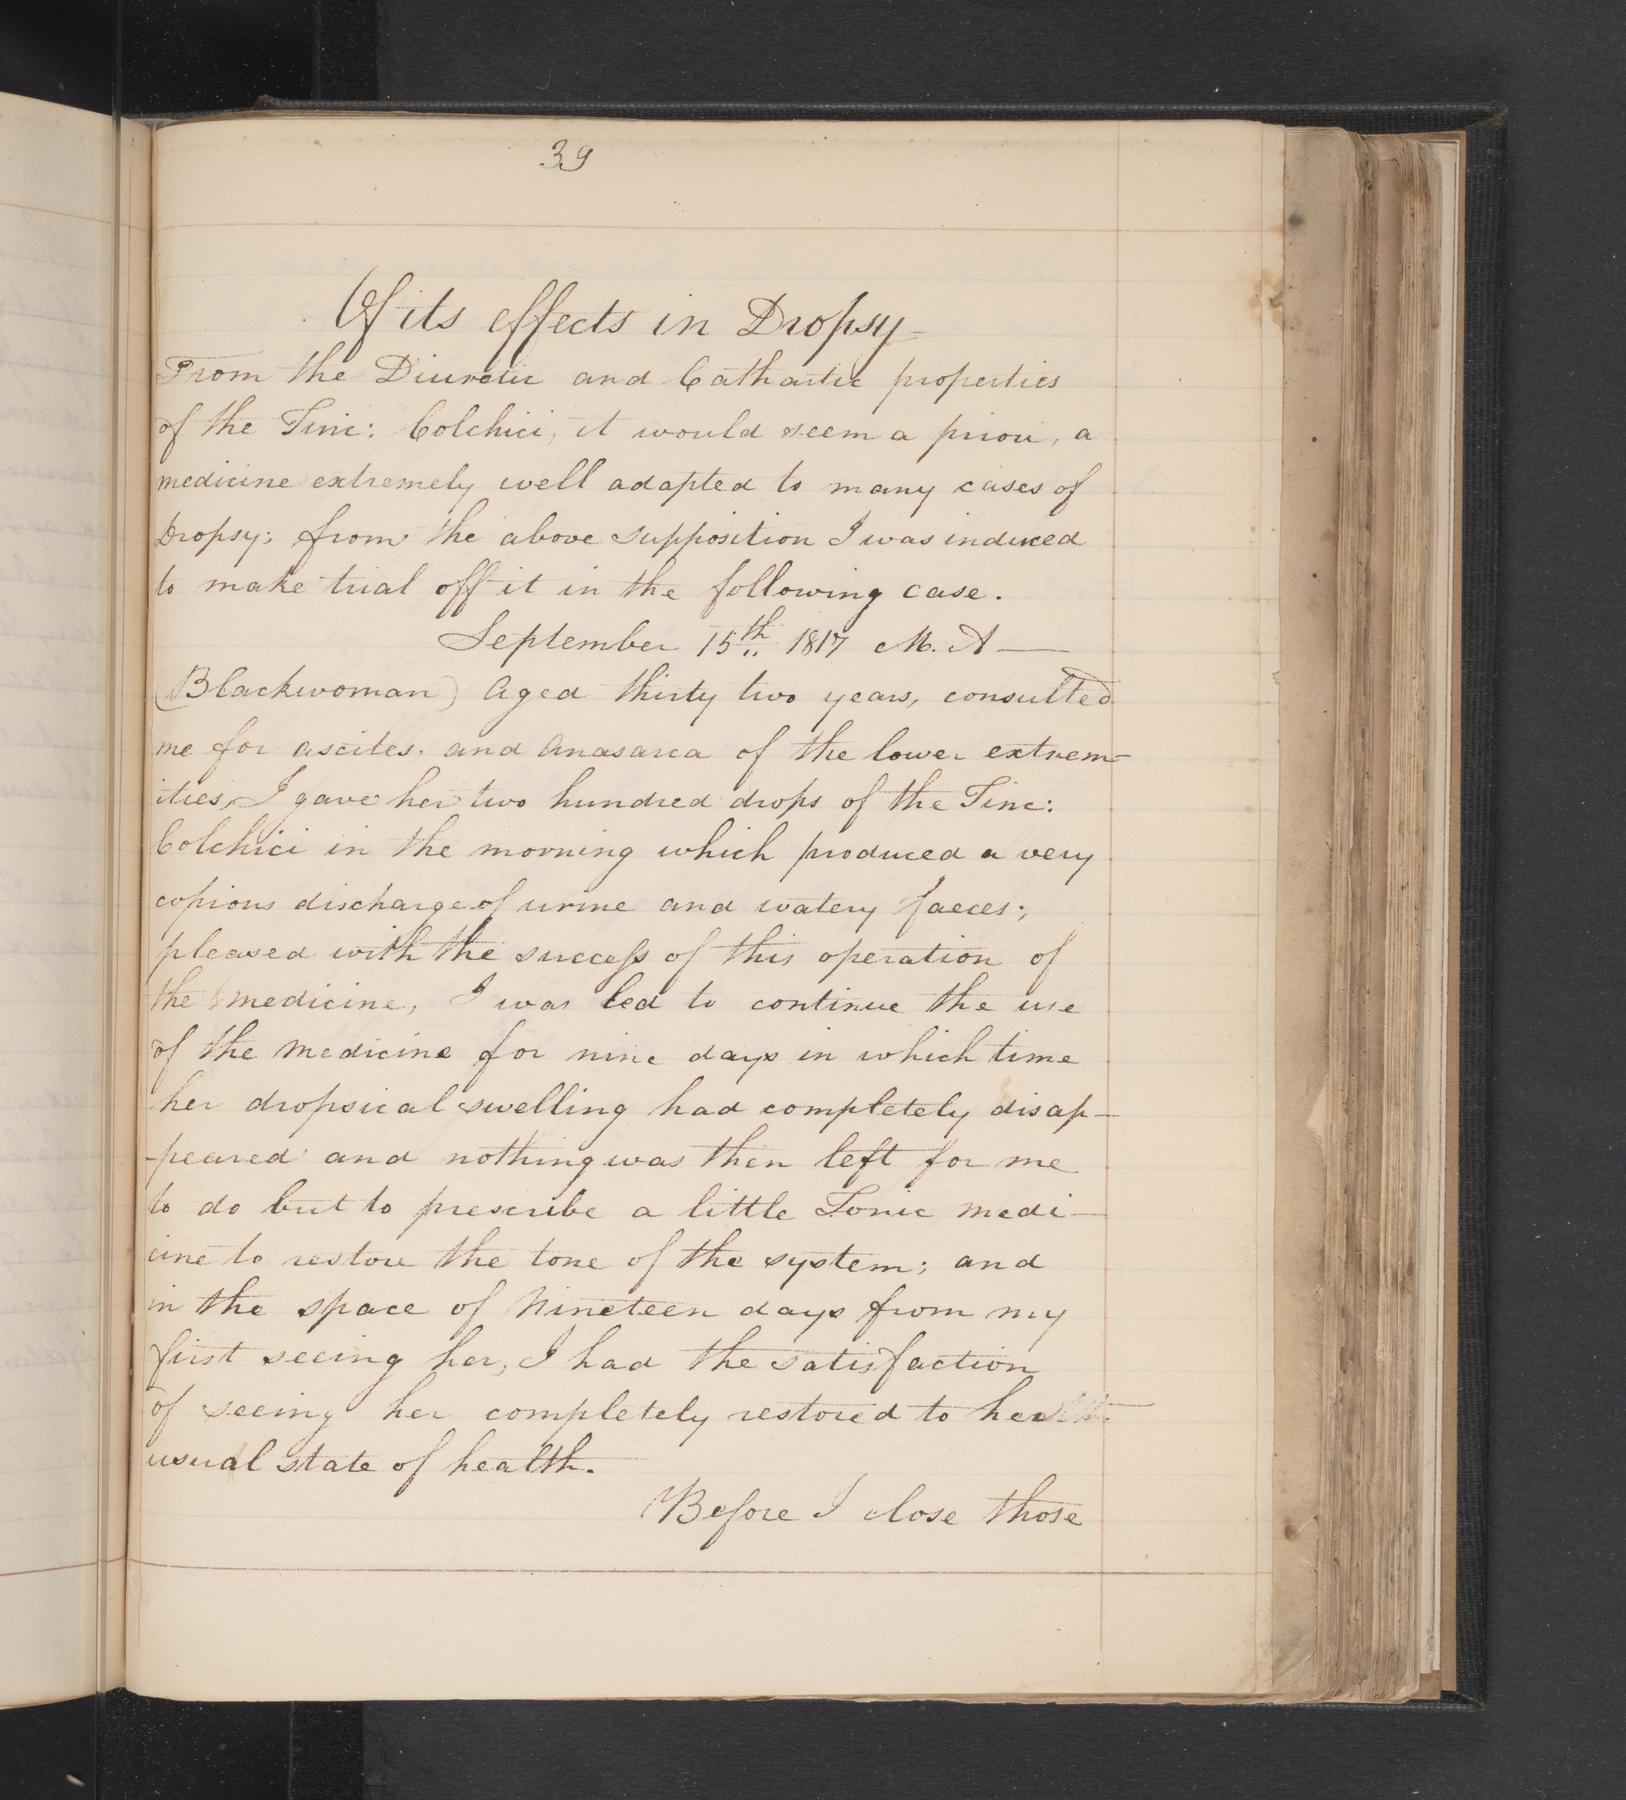 39
Of its effects in Dropsy-
From the Diuretic and Cathartic properties
of the Tinc: Colchici, it would seem a priori, a
medicine extremely well adapted to many cases of
Dropsy; from the above supposition I was induced
to make trial off it in the following case.
September 15th 1817 M. A—
(Blackwoman) Aged thirty two years, consulted
me for ascites. and Anasarca of the lower extrem-
ities, I gave her two hundred drops of the Tinc:
Colchici in the morning which produced a very
copious discharge of urine and watery faeces;
pleased with the success of this operation of
the medicine, I was led to continue the use
of the medicine for nine days in which time
her dropsical swelling had completely disap-
-peared and nothing was then left for me
to do but to prescribe a little Tonic medi-
cine to restore the tone of the system; and
in the space of Nineteen days from my
first seeing her, I had the satisfaction
of seeing her completely restored to her
usual state of health.
Before I close those